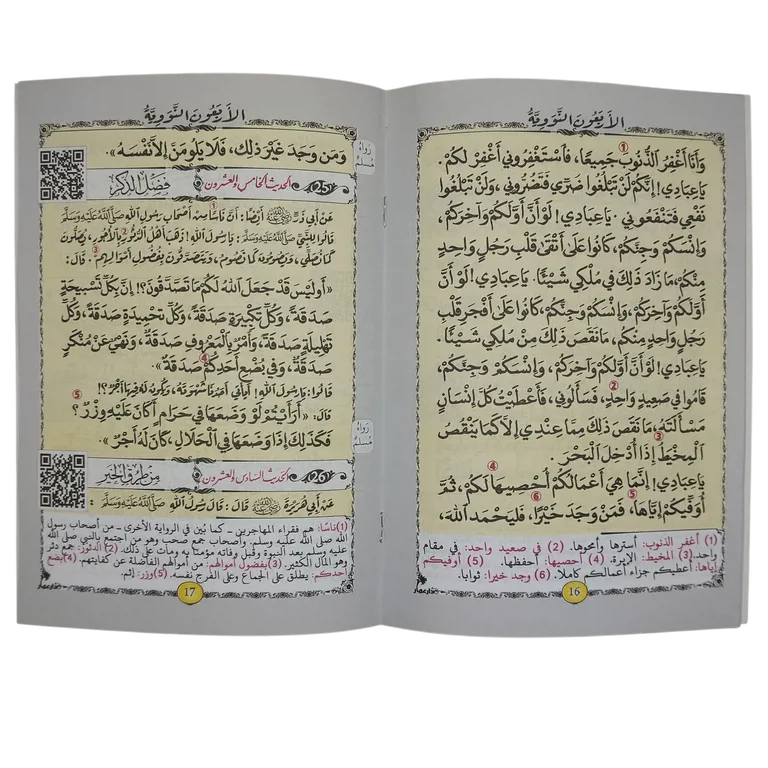 الأربعون النووية
وَأَنَا أَغْفِرُ الذُّنُوبَ جَمِيعًا، فَاسْتَغْفِرُونِي أَغْفِرْ لَكُمْ. (1)
يَا عِبَادِي! إِنَّكُمْ لَنْ تَبْلُغُوا ضَرِّي فَتَضُرُّونِي، وَلَنْ تَبْلُغُوا
نَفْعِي فَتَنْفَعُونِي. يَا عِبَادِي! لَوْ أَنَّ أَوَّلَكُمْ وَآخِرَكُمْ،
وَإِنْسَكُمْ وَجِنَّكُمْ، كَانُوا عَلَى أَتْقَى قَلْبِ رَجُلٍ وَاحِدٍ
مِنْكُمْ، مَا زَادَ ذَلِكَ فِي مُلْكِي شَيْئًا. يَا عِبَادِي! لَوْ أَنَّ
أَوَّلَكُمْ وَآخِرَكُمْ، وَإِنْسَكُمْ وَجِنَّكُمْ، كَانُوا عَلَى أَفْجَرِ قَلْبِ
رَجُلٍ وَاحِدٍ مِنْكُمْ، مَا نَقَصَ ذَلِكَ مِنْ مُلْكِي شَيْئًا.
يَا عِبَادِي! لَوْ أَنَّ أَوَّلَكُمْ وَآخِرَكُمْ، وَإِنْسَكُمْ وَجِنَّكُمْ،
قَامُوا فِي صَعِيدٍ وَاحِدٍ، (2) فَسَأَلُونِي، فَأَعْطَيْتُ كُلَّ إِنْسَانٍ
مَسْأَلَتَهُ، مَا نَقَصَ ذَلِكَ مِمَّا عِنْدِي إِلَّا كَمَا يَنْقُصُ
الْمِخْيَطُ (3) إِذَا أُدْخِلَ الْبَحْرَ.
يَا عِبَادِي! إِنَّمَا هِيَ أَعْمَالُكُمْ أُحْصِيهَا (4) لَكُمْ، ثُمَّ
أُوَفِّيكُمْ إِيَّاهَا، (5) فَمَنْ وَجَدَ خَيْرًا، (6) فَلْيَحْمَدِ اللهَ،
(1) أغفر الذنوب: أسترها وأمحوها. (2) في صعيد واحد: في مقام
واحد. (3) المخيط: الإبرة. (4) أحصيها: أحفظها. (5) أوفيكم
إياها: أعطيكم جزاء أعمالكم كاملا. (6) وجد خيرا: ثوابا.
16
الأربعون النووية
وَمَنْ وَجَدَ غَيْرَ ذَلِكَ، فَلَا يَلُومَنَّ إِلَّا نَفْسَهُ».
رواه مسلم
(25) الحديث الخامس والعشرون فضل الذكر
عَنْ أَبِي ذَرٍّ رضي الله عنه أَيْضًا: أَنَّ نَاسًا (1) مِنْ أَصْحَابِ رَسُولِ اللهِ صلى الله عليه وسلم
قَالُوا لِلنَّبِيِّ صلى الله عليه وسلم: يَا رَسُولَ اللهِ! ذَهَبَ أَهْلُ الدُّثُورِ (2) بِالْأُجُورِ، يُصَلُّونَ
كَمَا نُصَلِّي، وَيَصُومُونَ كَمَا نَصُومُ، وَيَتَصَدَّقُونَ بِفُضُولِ أَمْوَالِهِمْ. (3) قَالَ:
«أَوَلَيْسَ قَدْ جَعَلَ اللهُ لَكُمْ مَا تَصَدَّقُونَ؟! إِنَّ بِكُلِّ تَسْبِيحَةٍ
صَدَقَةً، وَكُلِّ تَكْبِيرَةٍ صَدَقَةً، وَكُلِّ تَحْمِيدَةٍ صَدَقَةً، وَكُلِّ
تَهْلِيلَةٍ صَدَقَةً، وَأَمْرٌ بِالْمَعْرُوفِ صَدَقَةٌ، وَنَهْيٌ عَنْ مُنْكَرٍ
صَدَقَةٌ، وَفِي بُضْعِ (4) أَحَدِكُمْ صَدَقَةٌ».
قَالُوا: يَا رَسُولَ اللهِ! أَيَأْتِي أَحَدُنَا شَهْوَتَهُ، وَيَكُونُ لَهُ فِيهَا أَجْرٌ؟!
قَالَ: «أَرَأَيْتُمْ لَوْ وَضَعَهَا فِي حَرَامٍ أَكَانَ عَلَيْهِ وِزْرٌ؟ (5)
فَكَذَلِكَ إِذَا وَضَعَهَا فِي الْحَلَالِ، كَانَ لَهُ أَجْرٌ».
رواه مسلم
(26) الحديث السادس والعشرون من طرق الخير
عَنْ أَبِي هُرَيْرَةَ رضي الله عنه قَالَ: قَالَ رَسُولُ اللهِ صلى الله عليه وسلم:
(1) ناسًا: هم فقراء المهاجرين - كما بُيّن في الرواية الأخرى - من أصحاب رسول
الله صلى الله عليه وسلم. وأصحاب جمع صحب وهو من اجتمع بالنبي صلى الله
عليه وسلم بعد النبوة وقبل وفاته مؤمنا به ومات على ذلك. (2) الدثور: جمع دثر
وهو المال الكثير. (3) بفضول أموالهم: من أموالهم الفاضلة عن كفايتهم. (4) بضع
أحدكم: يطلق على الجماع وعلى الفرج نفسه. (5) وزر: إثم.
17